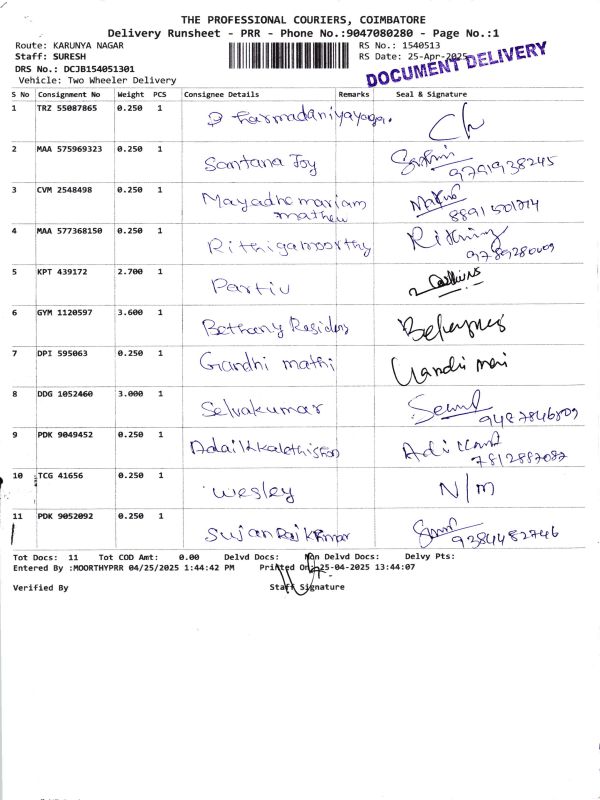 THE PROFESSIONAL COURIERS, COIMBATORE
Delivery Runsheet - PRR - Phone No.:9047080280 - Page No.:1
Route: KARUNYA NAGAR RS No.: 1540513
Staff: SURESH RS Date: 25-Apr-2025
DRS No.: DCJB154051301 DOCUMENT DELIVERY
Vehicle: Two Wheeler Delivery
S No Consignment No Weight PCS Consignee Details Remarks Seal & Signature
1 TRZ 55087865 0.250 1
2 MAA 575969323 0.250 1 Santana Joy
9791938245
3 CVM 2548498 0.250 1 Mayadhomariam
mathew
8891501714
4 MAA 577368150 0.250 1 Rithigamoorthy
9789280009
5 KPT 439172 2.700 1 Partiv
6 GYM 1120597 3.600 1 Bethany Residens
7 DPI 595063 0.250 1 Gandhi mathi
8 DDG 1052460 3.000 1 Selvakumar
9487846809
9 PDK 9049452 0.250 1
7812887087
10 TCG 41656 0.250 1 Wesley N/M
11 PDK 9052092 0.250 1 Sujan Raj Kumar
9284482746
Tot Docs: 11 Tot COD Amt: 0.00 Delvd Docs: Non Delvd Docs: Delvy Pts:
Entered By :MOORTHYPRR 04/25/2025 1:44:42 PM Printed On: 25-04-2025 13:44:07
Verified By Staff Signature